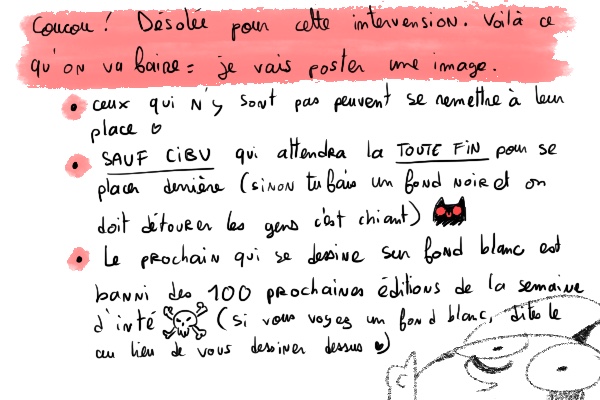 Coucou! Désolée pour cette intervension. Voilà ce
qu'on va faire: je vais poster une image.
• ceux qui n'y sont pas peuvent se remettre à leur
place
• SAUF CIBU qui attendra la TOUTE FIN pour se
placer derrière (sinon tu fais un fond noir et on
doit détourer les gens c'est chiant)
• Le prochain qui se dessine sur fond blanc est
banni des 100 prochaines éditions de la semaine
d'inté (si vous voyez un fond blanc, dites le
au lieu de vous dessiner dessus ♥)